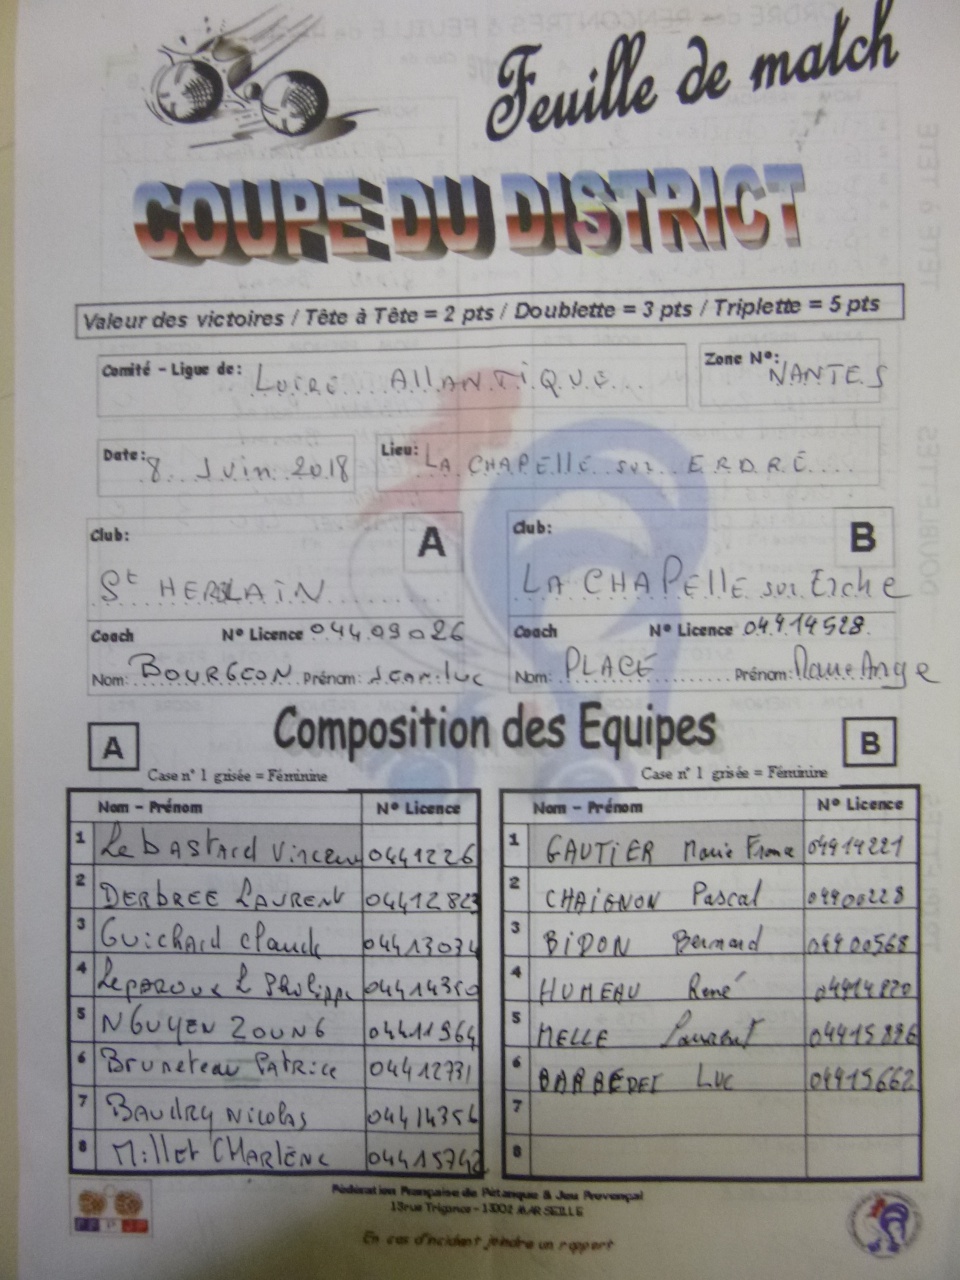 Feuille de match
COUPE DU DISTRICT
Valeur des victoires / Tête à Tête = 2 pts / Doublette = 3 pts / Triplette = 5 pts
Comité - Ligue de: LOIRE ATLANTIQUE
Zone N°: NANTES
Date: 8 Juin 2018
Lieu: LA CHAPElle sur ERDRE
Club: A
St HERBLAIN
Coach N° Licence 04409026
Nom: BOURGEON Prénom: Jean-luc
Club: B
LA CHAPElle sur Erdre
Coach N° Licence 04414528
Nom: PLACÉ Prénom: Marie Ange
Composition des Equipes
A
Case n° 1 grisée = Féminine
Nom - Prénom N° Licence
1 Le bASTArd Vincent 0441226
2 DERBREE LAURENT 04412823
3 Guichard Claude 04413034
4 Leparoux Philippe 04414350
5 NGUYEN ZOUNG 04411964
6 Bruneteau PATrice 04412731
7 BAUdRy Nicolas 04414354
8 Millet CHArlène 04415742
B
Case n° 1 grisée = Féminine
Nom - Prénom N° Licence
1 GAUTIER Marie France 04414221
2 CHAIGNON Pascal 04400228
3 BIDON Bernard 04400568
4 HUMEAU René 04414820
5 MELLE Laurent 04415886
6 BARBEDET Luc 04415662
7
8
Fédération Française de Pétanque & Jeu Provençal
13 rue Trigance - 13002 MARSEILLE
En cas d'incident joindre un rapport